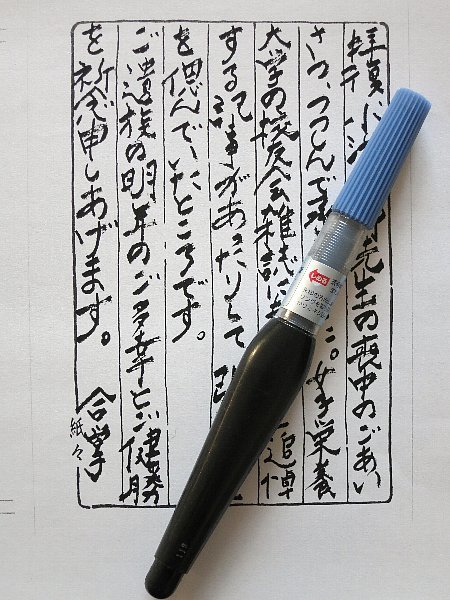 拝復 小池 先生の喪中のごあい
さつ、つつしんで承 。女子栄養
大学の校友会雑誌に 追悼
する記事があったりして
を偲んでいたところです。
ご遺族の明年のご多幸とご健勝
を祈念申しあげます。 合掌
紙々